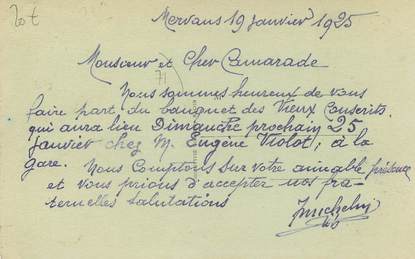 Mervans 19 janvier 1925
Monsieur et Cher Camarade
Nous sommes heureux de vous
faire part du banquet des Vieux Conscrits
qui aura lieu Dimanche prochain 25
janvier chez M. Eugène Violot, à la
gare. Nous Comptons sur votre aimable présence
et vous prions d'accepter nos fra-
ternelles salutations